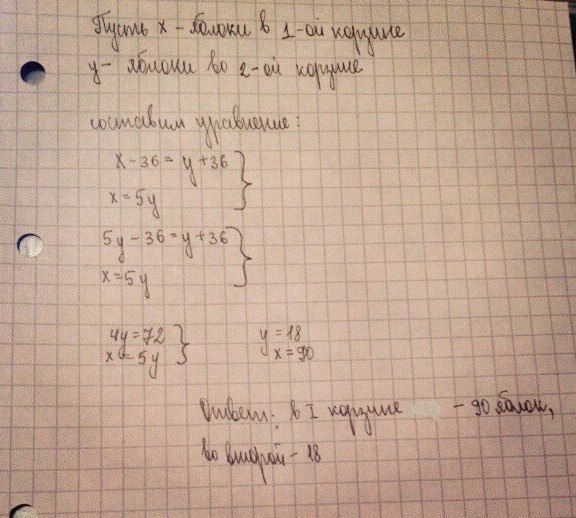 Пусть х - яблоки в 1-ой корзине
у - яблоки во 2-ой корзине
составим уравнение:
x - 36 = y + 36 }
x = 5y
5y - 36 = y + 36 }
x = 5y
4y = 72 } y = 18
x = 5y x = 90
Ответ: в I корзине - 90 яблок,
во второй - 18